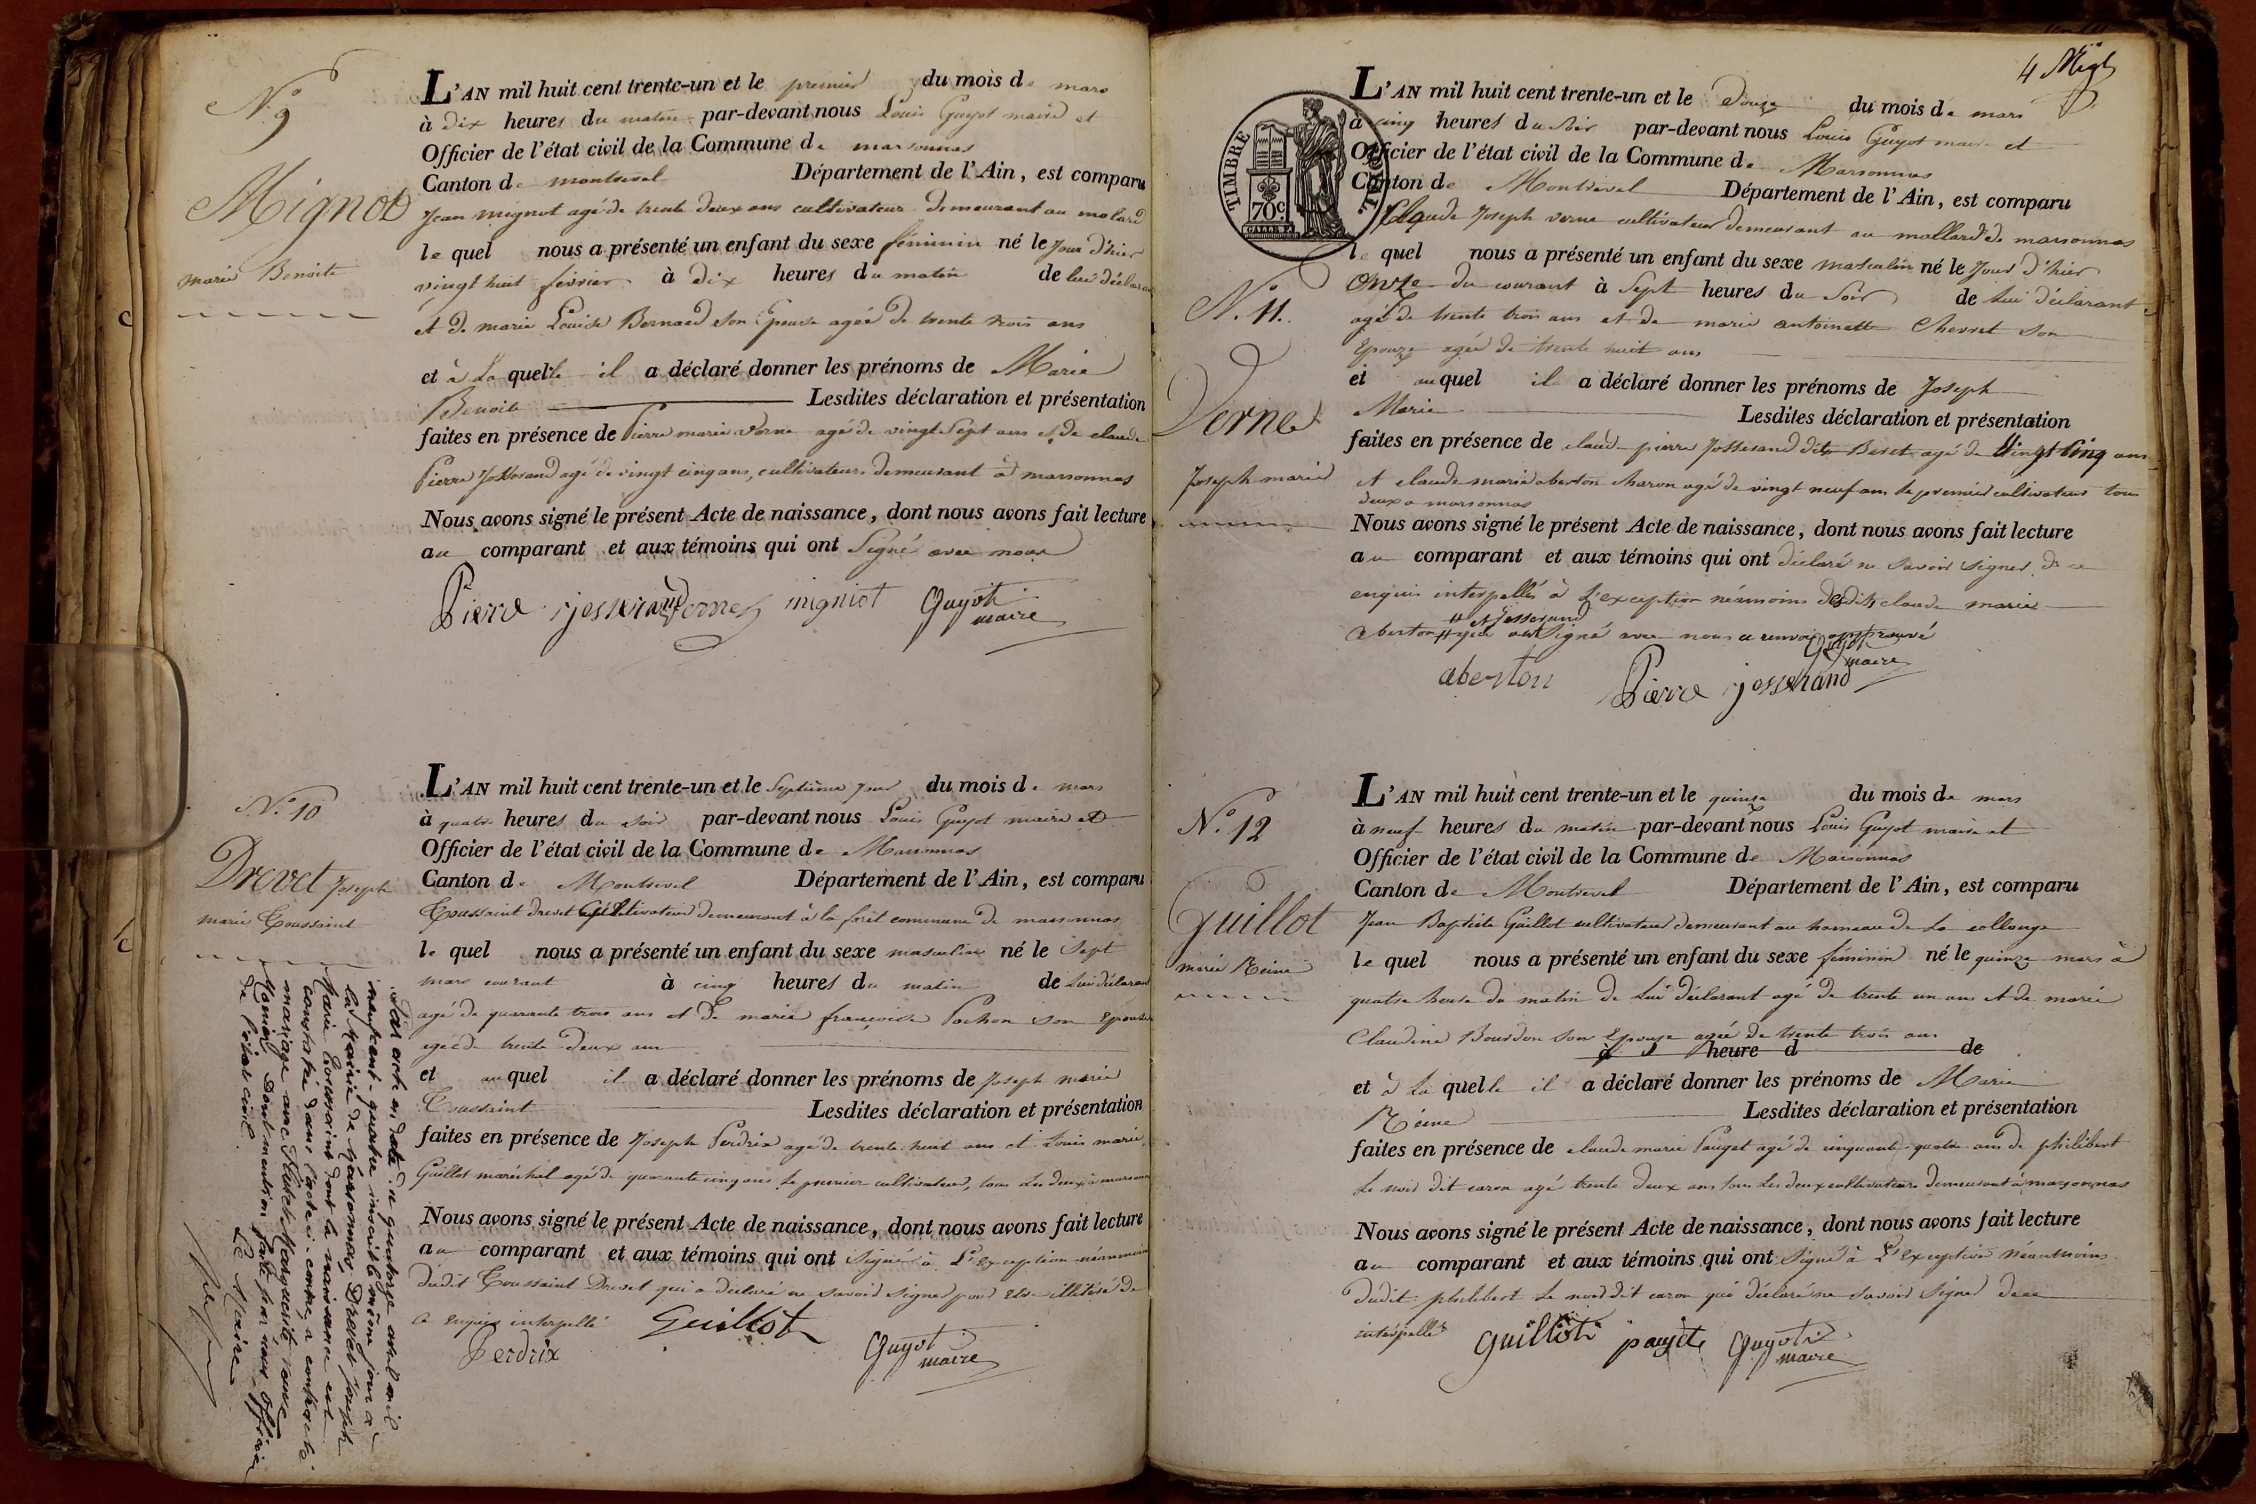 N.° 9
Mignot
marie Benoite
L'AN mil huit cent trente-un et le premier du mois de mars
à dix heures du matin par-devant nous Louis Guyot maire et
Officier de l'état civil de la Commune de marsonnas
Canton de montrevel Département de l'Ain, est comparu
Jean mignot agé de trente deux ans cultivateur demeurant au molard
le quel nous a présenté un enfant du sexe féminin né le jour d'hier
vingt huit février à dix heures du matin de lui déclarant
et de marie Louise Bernard son Epouse agée de trente trois ans
et à La quelle il a déclaré donner les prénoms de Marie
Benoite Lesdites déclaration et présentation
faites en présence de Pierre marie verne agé de vingt Sept ans et de claude
Pierre Josserand agé de vingt cinq ans, cultivateurs demeurant à marsonnas
Nous avons signé le présent Acte de naissance, dont nous avons fait lecture
au comparant et aux témoins qui ont Signé avec nous
Pierre josserand verne migniot Guyot
maire
N.° 10
Drevet Joseph
marie Toussaint
L'AN mil huit cent trente-un et le Septième jour du mois de mars
à quatre heures du soir par-devant nous Louis Guyot maire et
Officier de l'état civil de la Commune de Marsonnas
Canton de Montrevel Département de l'Ain, est comparu
Toussaint drevet cultivateur demeurant à la forêt commune de marsonnas
le quel nous a présenté un enfant du sexe masculin né le Sept
mars courant à cinq heures du matin de Lui déclarant
agé de quarante trois ans et De marie françoise Pochon son Epouse
agée de trente deux ans
et au quel il a déclaré donner les prénoms de Joseph marie
Toussaint Lesdites déclaration et présentation
faites en présence de Joseph Perdrix agé de trente huit ans et Louis marie
Guillot maréchal agé de quarante cinq ans Le premier cultivateur, tous Les deux à marsonnas
Nous avons signé le présent Acte de naissance, dont nous avons fait lecture
au comparant et aux témoins qui ont Signé à L'exception néanmoins
dudit Toussaint Drevet qui a déclaré ne savoir signer pour Etre illitéré de
ce enquis interpellé Guillot
Perdrix Guyot
maire
Par acte en date du quatorze avril mil
huit cent quatre inscrit le même jour à
la Mairie de Marsonnas, Drevet Joseph
Marie Toussaint dont la naissance est
constatée dans l'acte ci-contre, a contracté
mariage avec Marguerite
Dont mention faite par nous officier
de l'état civil.
Le Maire
4 Migt
TIMBRE ROYAL
70c
N.° 11.
Verne
Joseph marie
L'AN mil huit cent trente-un et le Douze du mois de mars
à cinq heures du Soir par-devant nous Louis Guyot maire et
Officier de l'état civil de la Commune de Marsonnas
Canton de Montrevel Département de l'Ain, est comparu
Claude Joseph verne cultivateur demeurant au mollard de marsonnas
le quel nous a présenté un enfant du sexe masculin né le Jour d'hier
Onze du courant à Sept heures du Soir de Lui déclarant
agé de trente trois ans et de marie antoinette Chevret son
Epouze agée de trente huit ans
et au quel il a déclaré donner les prénoms de Joseph
Marie Lesdites déclaration et présentation
faites en présence de claude pierre Josserand dit Beset agé de Vingt Cinq ans
et claude marie aberton charon agé de vingt neuf ans le premier cultivateur tous
deux a marsonnas
Nous avons signé le présent Acte de naissance, dont nous avons fait lecture
au comparant et aux témoins qui ont déclaré ne Savoir Signer de ce
enquis interpellés à L'exception néanmoins desdits claude marie
# et Josserand
aberton # qui ont Signé avec nous ce renvoi approuvé
Guyot
maire
aberton Pierre josserand
N.° 12
Guillot
marie Reine
L'AN mil huit cent trente-un et le quinze du mois de mars
à neuf heures du matin par-devant nous Louis Guyot maire et
Officier de l'état civil de la Commune de Marsonnas
Canton de Montrevel Département de l'Ain, est comparu
Jean Baptiste Guillot cultivateur demeurant au hameau de La collonge
le quel nous a présenté un enfant du sexe féminin né le quinze mars à
quatre heure du matin de Lui déclarant agé de trente un ans et de marie
Claudine Bourdon son Epouze agée de trente trois ans
à heure d de
et à La quelle il a déclaré donner les prénoms de Marie
Reine Lesdites déclaration et présentation
faites en présence de claude marie Pauget agé de cinquante quatre ans de philibert
Le noir dit caron agé trente deux ans tous Les deux cultivateurs demeurant à marsonnas
Nous avons signé le présent Acte de naissance, dont nous avons fait lecture
au comparant et aux témoins qui ont Signé à L'Exception Néanmoins
dudit philibert Le noir dit caron qui déclaré ne Savoir Signer de ce
interpellé Guillot paujet Guyot
maire